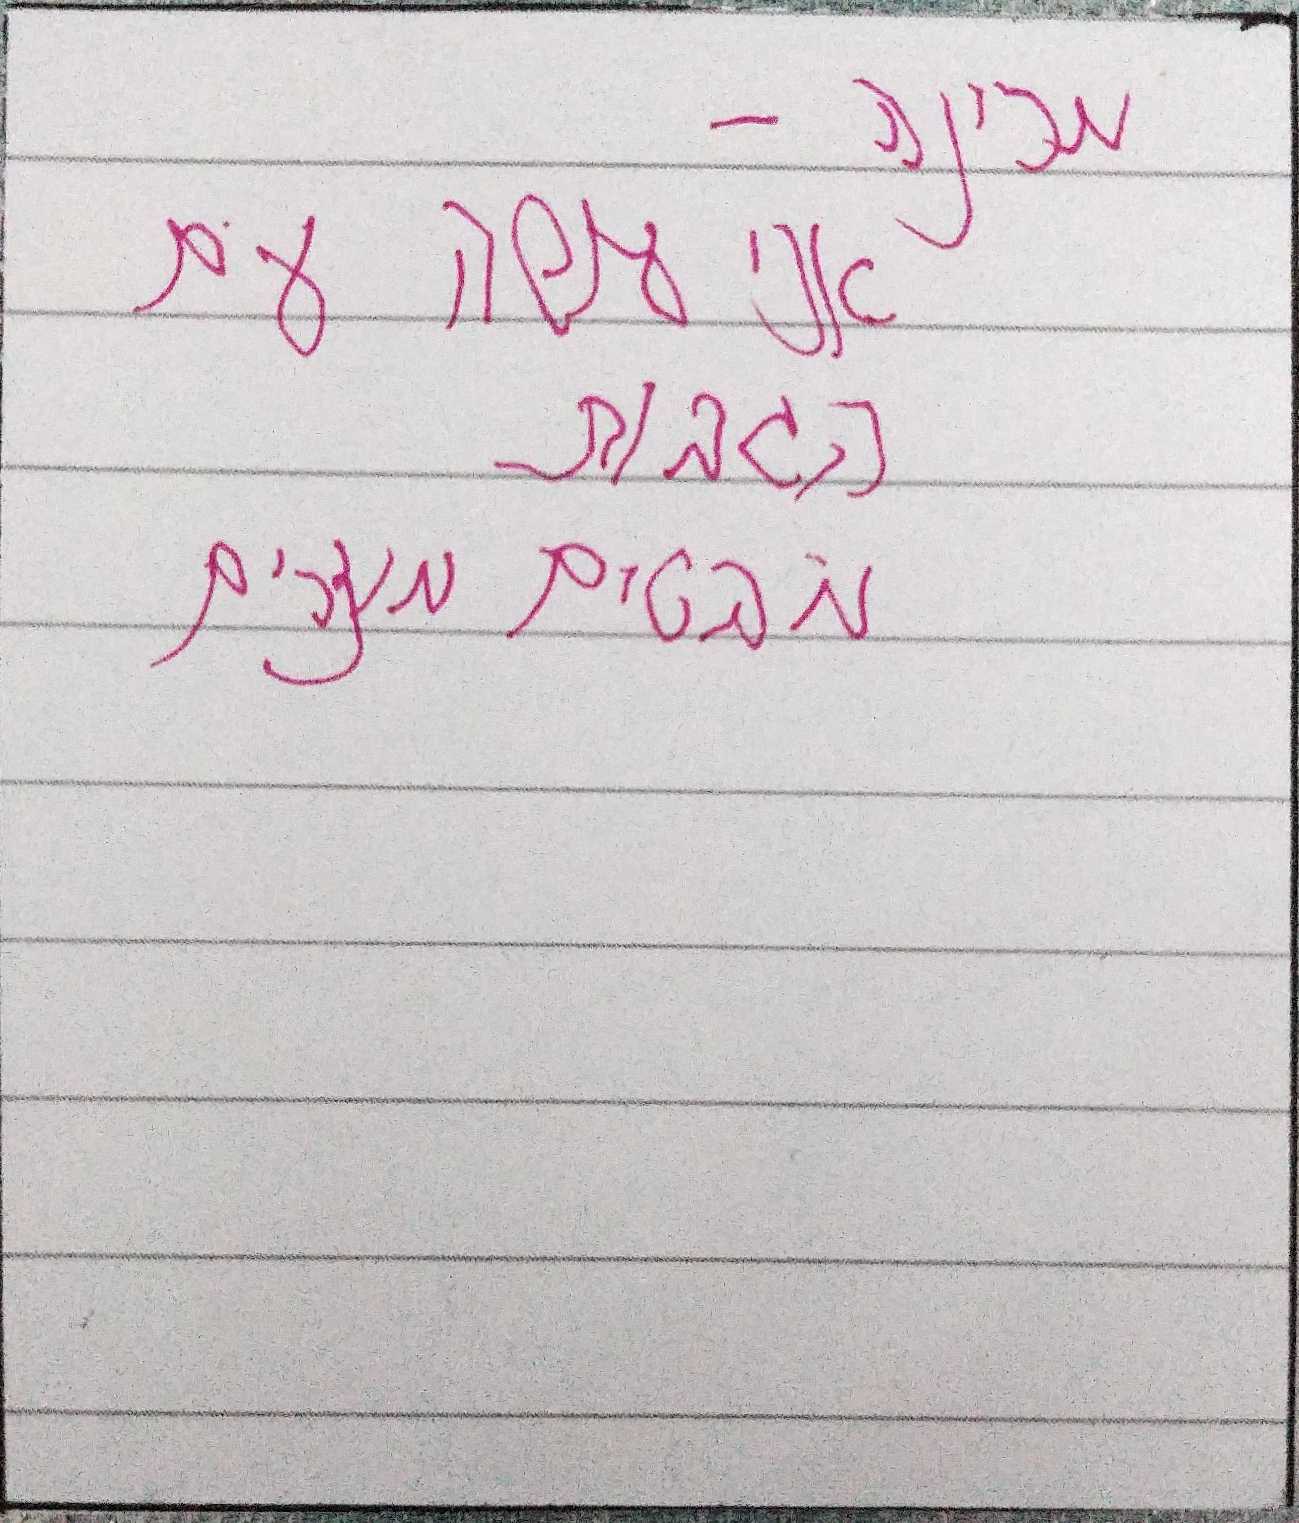 מרינה -
אני עושה עם
הגבות
מבטים מוזרים